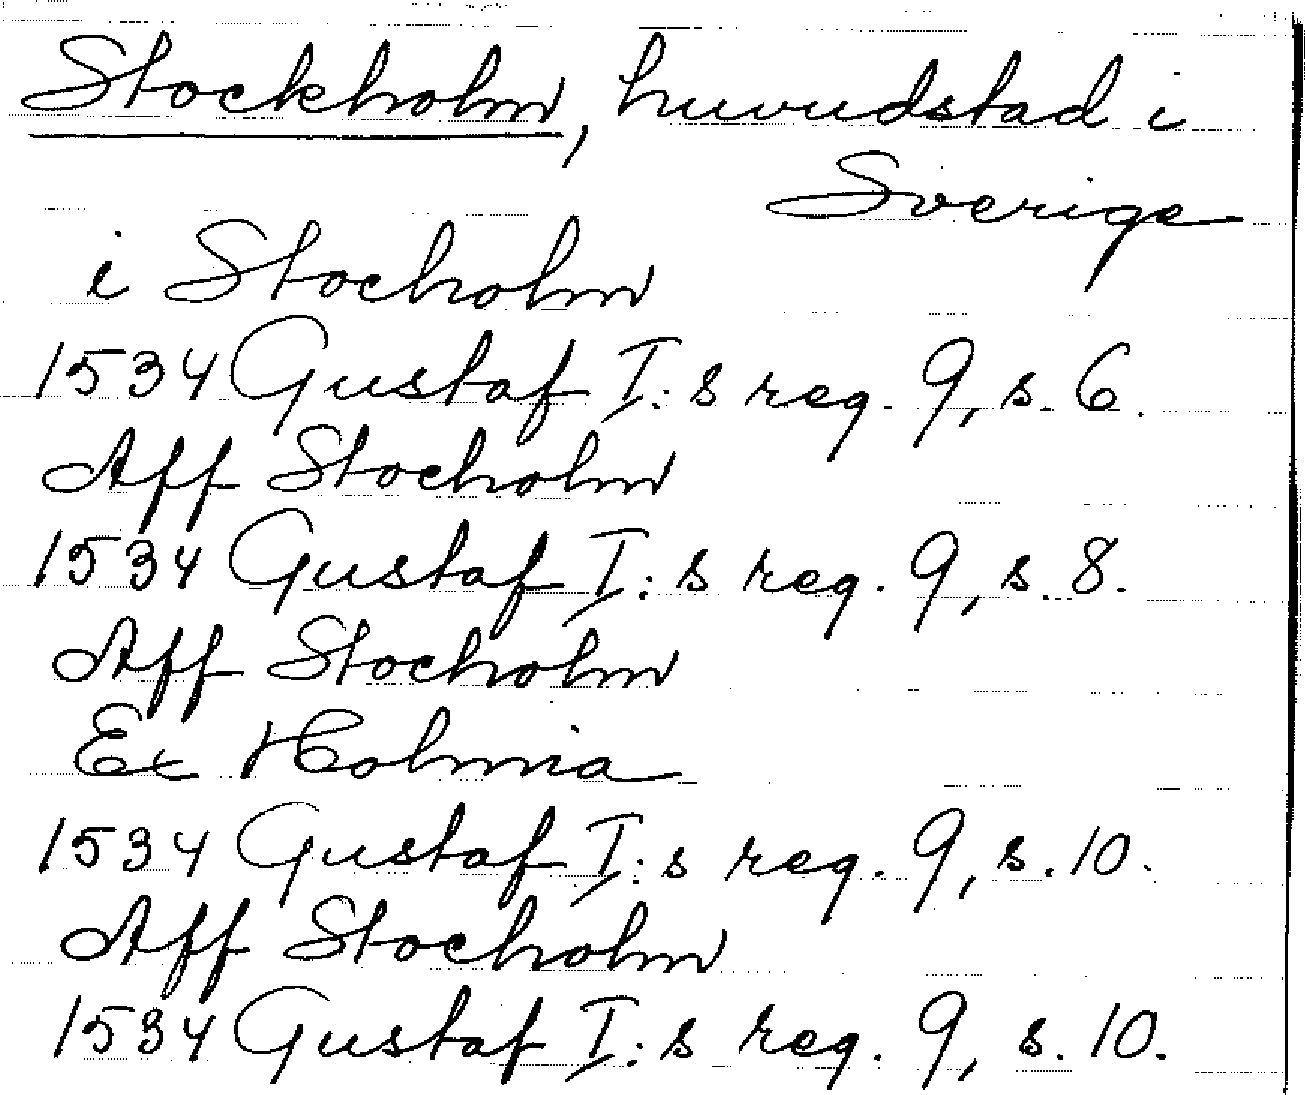 Stockholm, huvudstad i
Sverige
i Stocholm
1534 Gustaf I:s reg. 9, s. 6.
Aff Stocholm
1534 Gustaf I:s reg. 9, s. 8.
Aff Stocholm
Ex Holmia
1534 Gustaf I:s reg. 9, s. 10.
Aff Stocholm
1534 Gustaf I:s reg. 9, s. 10.